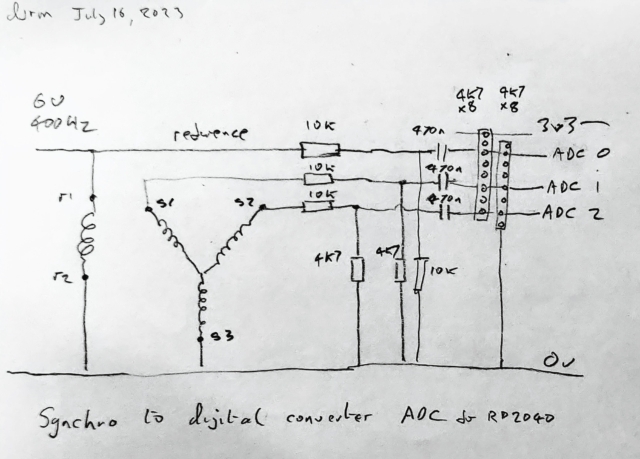 July 16, 2023
6V
400Hz
reference
10K
10K
10K
470n
470n
470n
4K7
x8
4K7
x8
3v3
ADC 0
ADC 1
ADC 2
r1
r2
s1
s2
s3
4K7
4K7
10K
0v
Synchro to digital converter ADC for RP2040